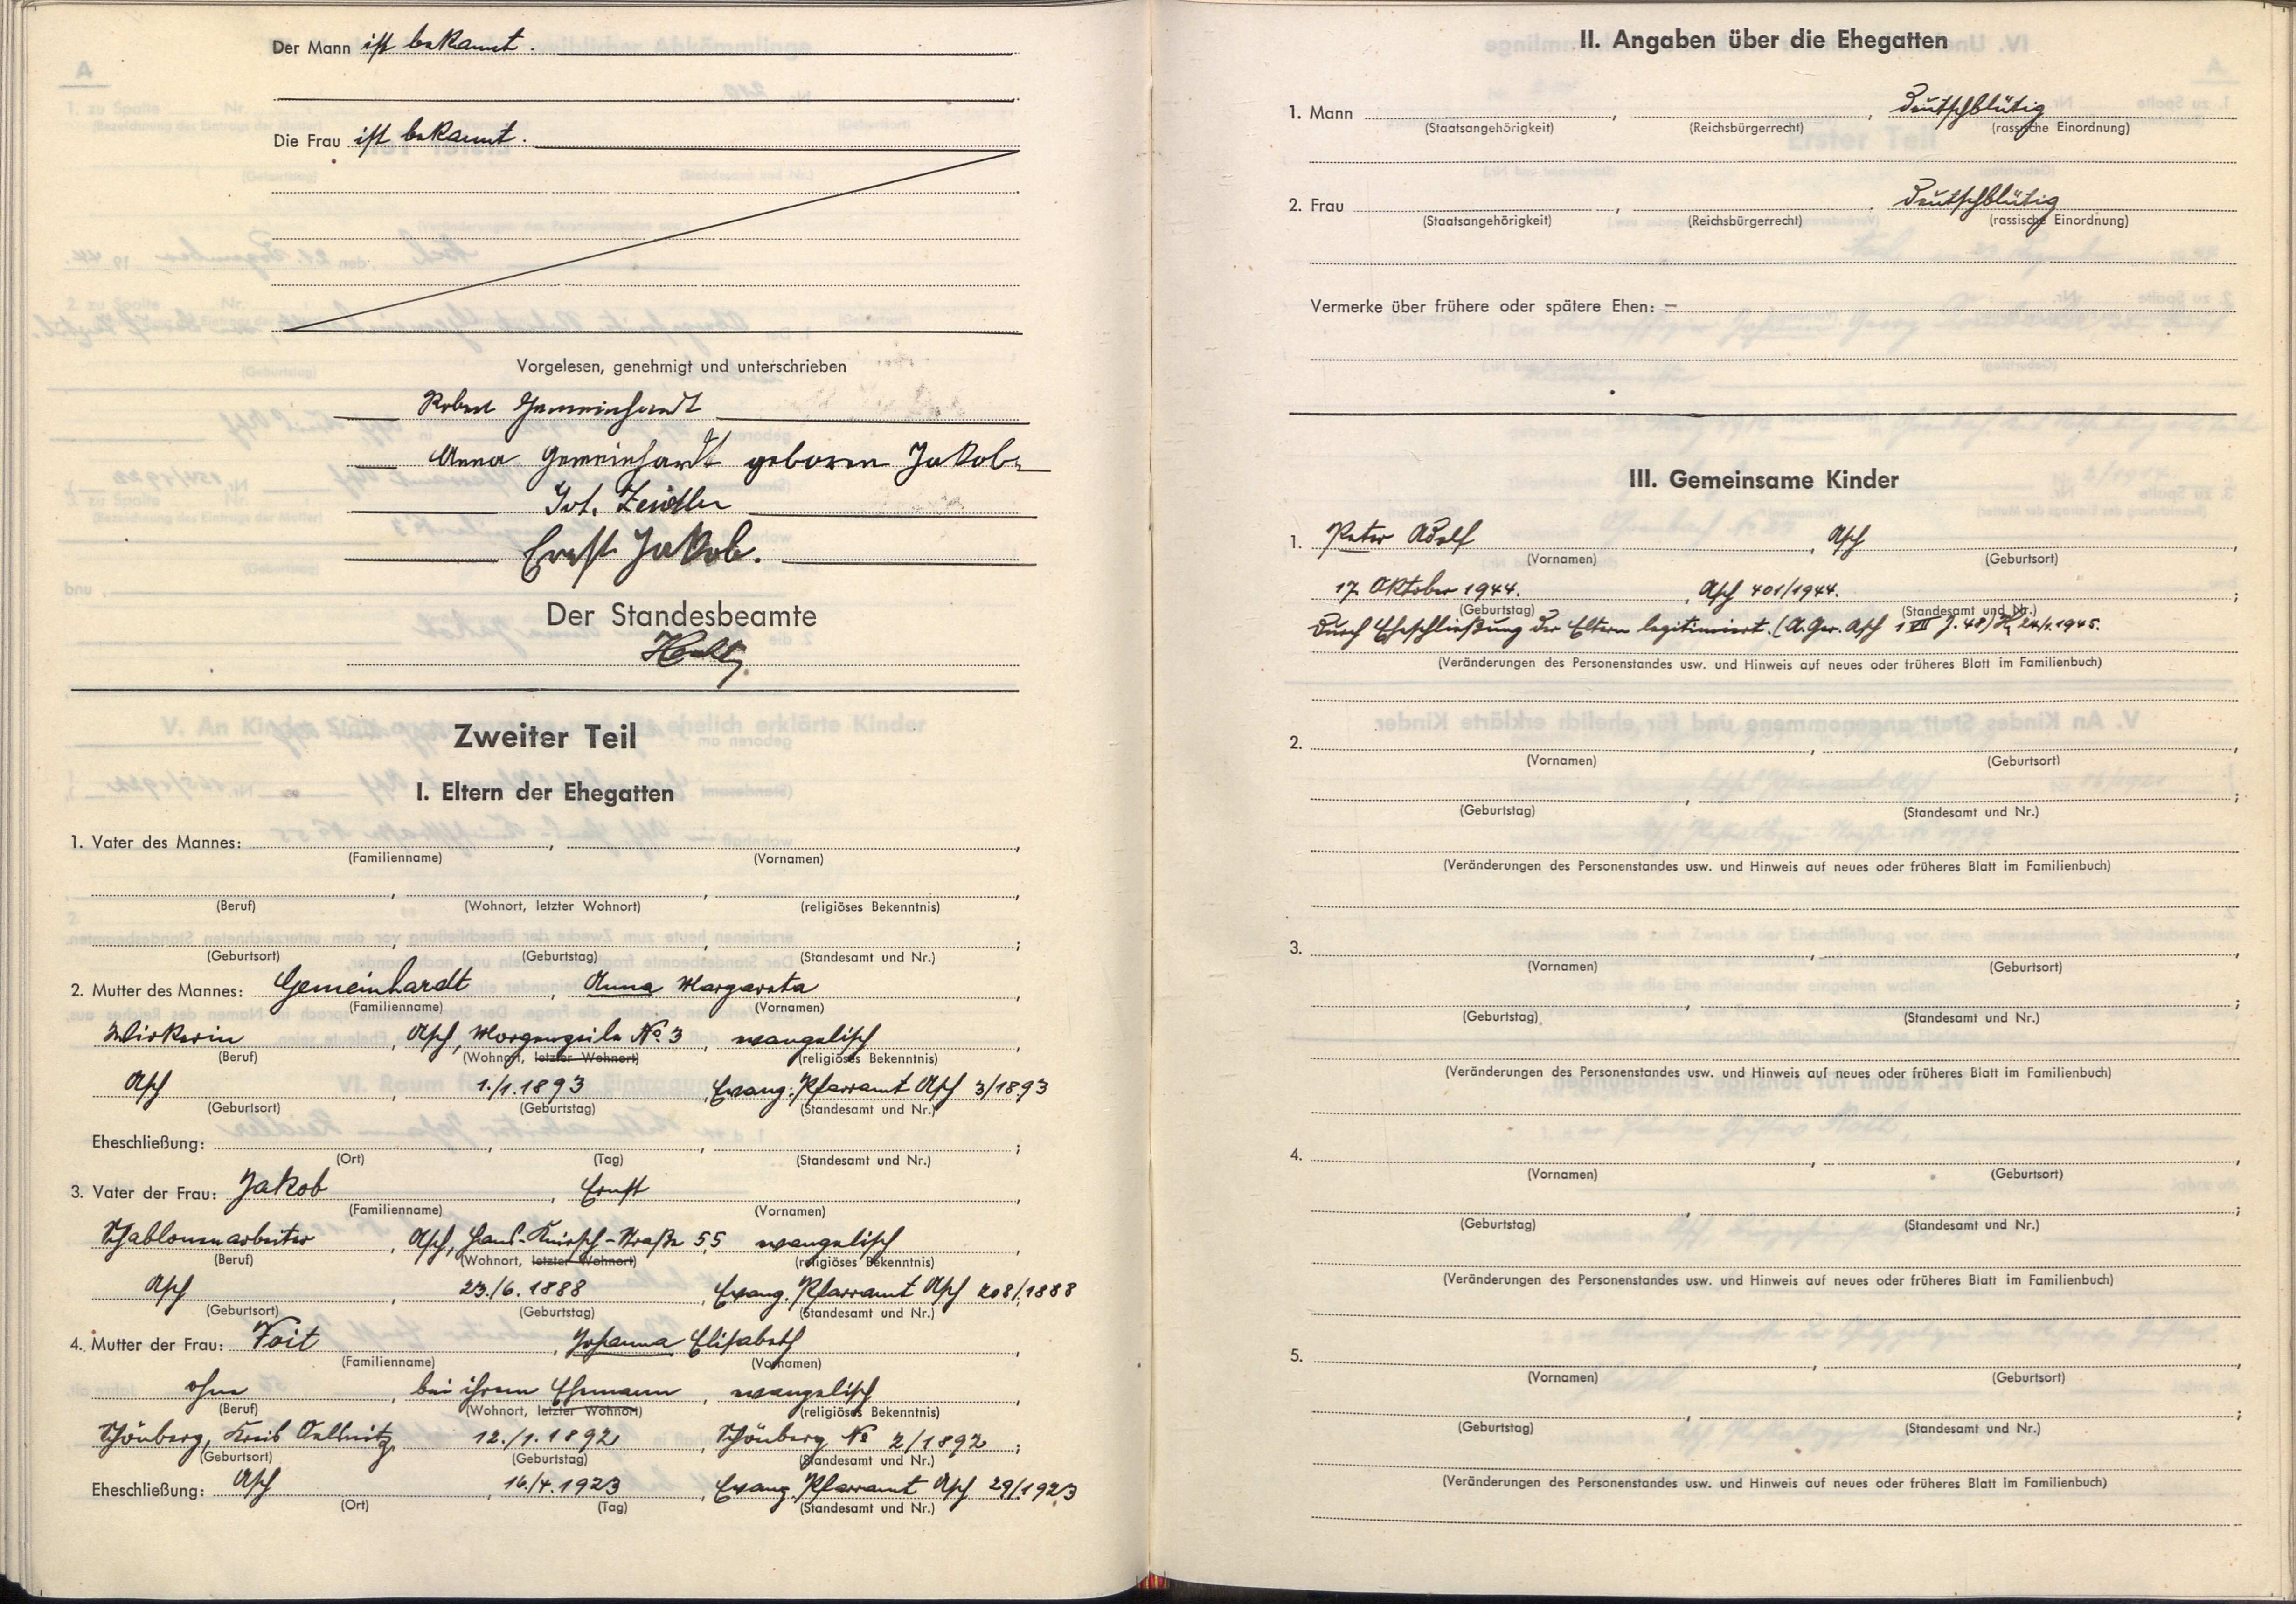 Der Mann ist bekannt.
Die Frau ist bekannt.
Vorgelesen, genehmigt und unterschrieben
Robert Gemeinhardt
Anna Gemeinhardt geboren Jakob
Joh. Zeidler
Ernst Jakob.
Der Standesbeamte
Zweiter Teil
I. Eltern der Ehegatten
1. Vater des Mannes:
(Familienname) (Vornamen)
(Beruf) (Wohnort, letzter Wohnort) (religiöses Bekenntnis)
(Geburtsort) (Geburtstag) (Standesamt und Nr.)
2. Mutter des Mannes: Gemeinhardt, Anna Margareta
(Familienname) (Vornamen)
Wirkerin, Asch, Morgenzeile No. 3, evangelisch
(Beruf) (Wohnort, letzter Wohnort) (religiöses Bekenntnis)
Asch, 1./1.1893, Evang. Pfarramt Asch 3/1893
(Geburtsort) (Geburtstag) (Standesamt und Nr.)
Eheschließung:
(Ort) (Tag) (Standesamt und Nr.)
3. Vater der Frau: Jakob, Ernst
(Familienname) (Vornamen)
Schablonenarbeiter, Asch, Hans-Knirsch-Straße 55 evangelisch
(Beruf) (Wohnort, letzter Wohnort) (religiöses Bekenntnis)
Asch, 23./6.1888, Evang. Pfarramt Asch 208/1888
(Geburtsort) (Geburtstag) (Standesamt und Nr.)
4. Mutter der Frau: Voit, Johanna Elisabeth
(Familienname) (Vornamen)
ohne, bei ihrem Ehemann, evangelisch
(Beruf) (Wohnort, letzter Wohnort) (religiöses Bekenntnis)
Schönberg, Kreis Oelsnitz, 12./1.1892, Schönberg No 2/1892;
(Geburtsort) (Geburtstag) (Standesamt und Nr.)
Eheschließung: Asch, 16./4.1923, Evang. Pfarramt Asch 29/1923
(Ort) (Tag) (Standesamt und Nr.)
II. Angaben über die Ehegatten
1. Mann deutschblütig
(Staatsangehörigkeit) (Reichsbürgerrecht) (rassische Einordnung)
2. Frau deutschblütig
(Staatsangehörigkeit) (Reichsbürgerrecht) (rassische Einordnung)
Vermerke über frühere oder spätere Ehen: –
III. Gemeinsame Kinder
1. Peter Adolf, Asch,
(Vornamen) (Geburtsort)
17. Oktober 1944., Asch 401/1944.;
(Geburtstag) (Standesamt und Nr.)
Durch Eheschließung der Eltern legitimiert. (A. Ger. Asch 1 VII J. 48) 24./1.1945.
(Veränderungen des Personenstandes usw. und Hinweis auf neues oder früheres Blatt im Familienbuch)
2.
(Vornamen) (Geburtsort)
(Geburtstag) (Standesamt und Nr.)
(Veränderungen des Personenstandes usw. und Hinweis auf neues oder früheres Blatt im Familienbuch)
3.
(Vornamen) (Geburtsort)
(Geburtstag) (Standesamt und Nr.)
(Veränderungen des Personenstandes usw. und Hinweis auf neues oder früheres Blatt im Familienbuch)
4.
(Vornamen) (Geburtsort)
(Geburtstag) (Standesamt und Nr.)
(Veränderungen des Personenstandes usw. und Hinweis auf neues oder früheres Blatt im Familienbuch)
5.
(Vornamen) (Geburtsort)
(Geburtstag) (Standesamt und Nr.)
(Veränderungen des Personenstandes usw. und Hinweis auf neues oder früheres Blatt im Familienbuch)